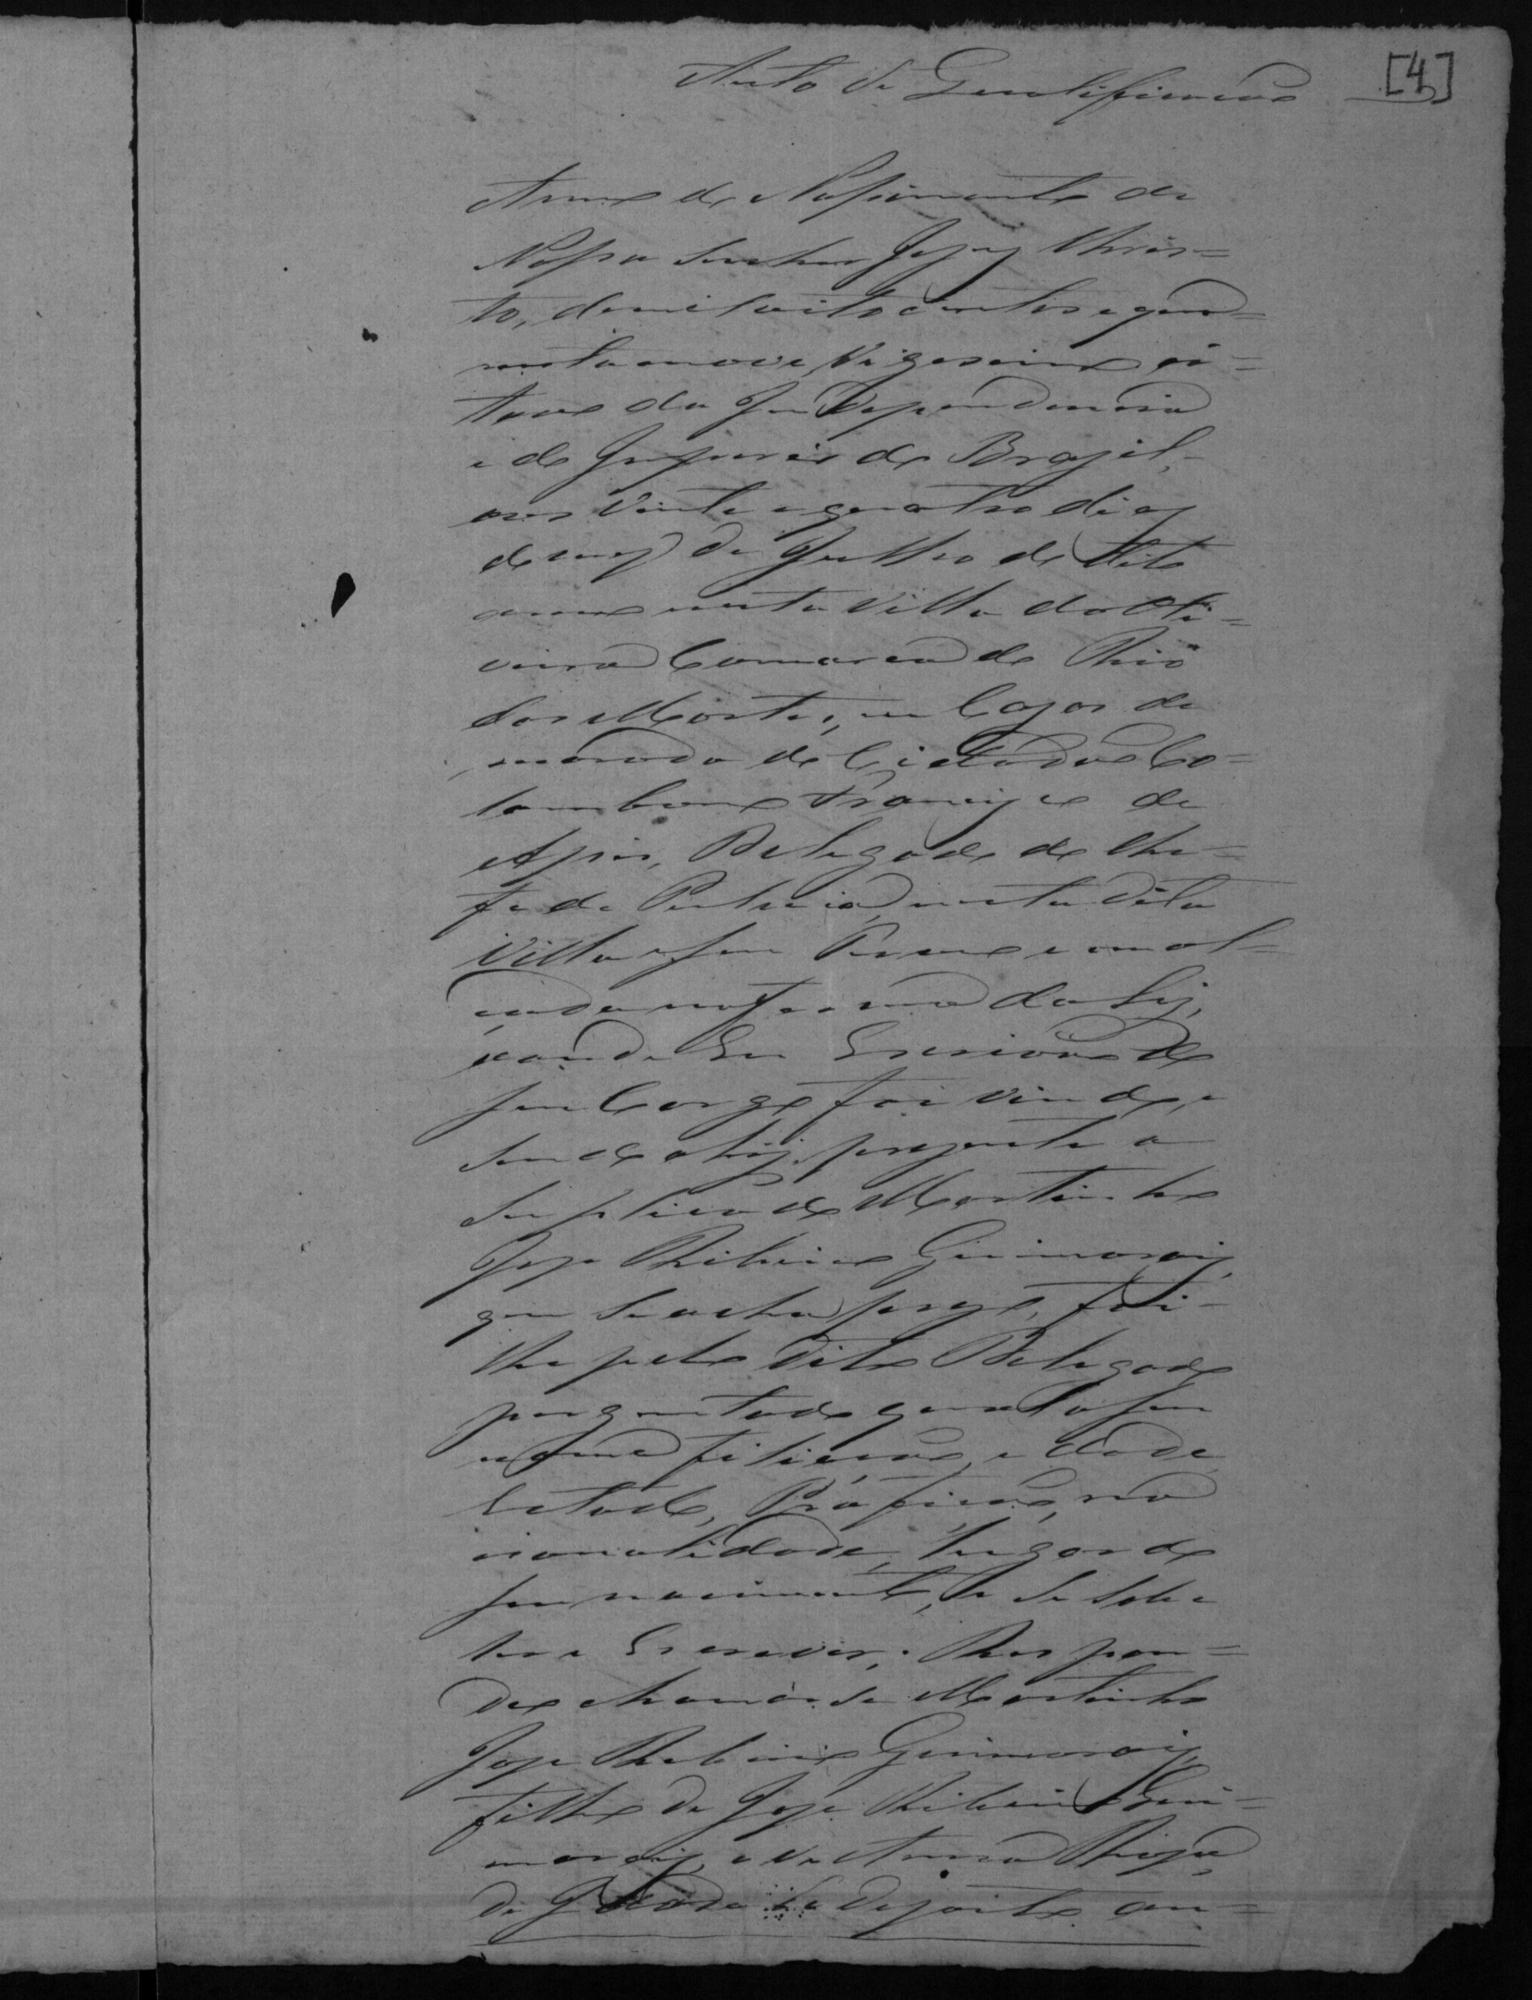 [4]
Auto de Qualificacaõ
Anno do Nassimento de
Nosso Senhor Jezus Chris=
to, de mil oito centos e qua=
renta nove, Vigesimo oi=
tavo da Independencia
e do Imperio do Brazil,
aos Vinte e quatro dias
do mez de Julho do dito
anno nesta Villa da Oli=
veira Comarca do Rio
das Mortes, em Cazas de
morada do Cidadaõ Co=
lombano Francisco de
Assis, Delegado do Che=
fe de Policia nesta dita
Villa e seu Termo
na forma da Lei,
e aonde Eu Escrivaõ de
seu Cargo foi vindo, e
sendo ahi prezente o
Suplicado Martinho
Joze Ribeiro Guimarais,
que se acha prezo, foi-
lhe pelo dito Delegado
perguntado qual o seu
nome filiacaõ, e dade
Estado, Profissaõ, na
cionalidade, lugar do
seu nacimento, e se sabe
ler e Escrever; Respon=
deo chamar se Martinho
Joze Ribeiro Guimarais,
filho de Joze Ribeiro Gui=
marais, e de Anna Roza
de Idade de dezoito an=